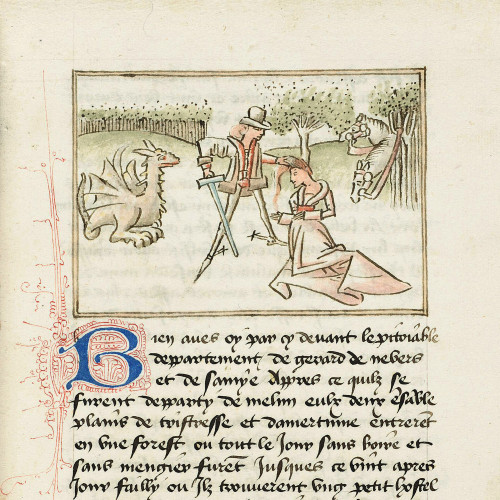 Bien aves oy par cy devant le pitoiable
departement de gerard de nevers
et de samye Apres ce quilz se
furent departy de melun eulx deux ensamble
plains de tristresse et damertume entrerent
en une forest ou tout le Jour sans boire et
sans mengier furent Jusques ce vint apres
Jour failly ou Ilz trouverent ung petit hostel